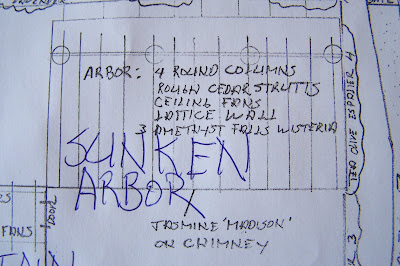 LAVENDER
ARBOR: 4 ROUND COLUMNS
ROUGH CEDAR STRUTTS
CEILING FANS
LATTICE WALL
3 AMETHYST FALLS WISTERIA
SUNKEN
ARBOR
JASMINE 'MADISON'
ON CHIMNEY
DOOR
FANS
TEED OLIVE ESPALIER 4
3